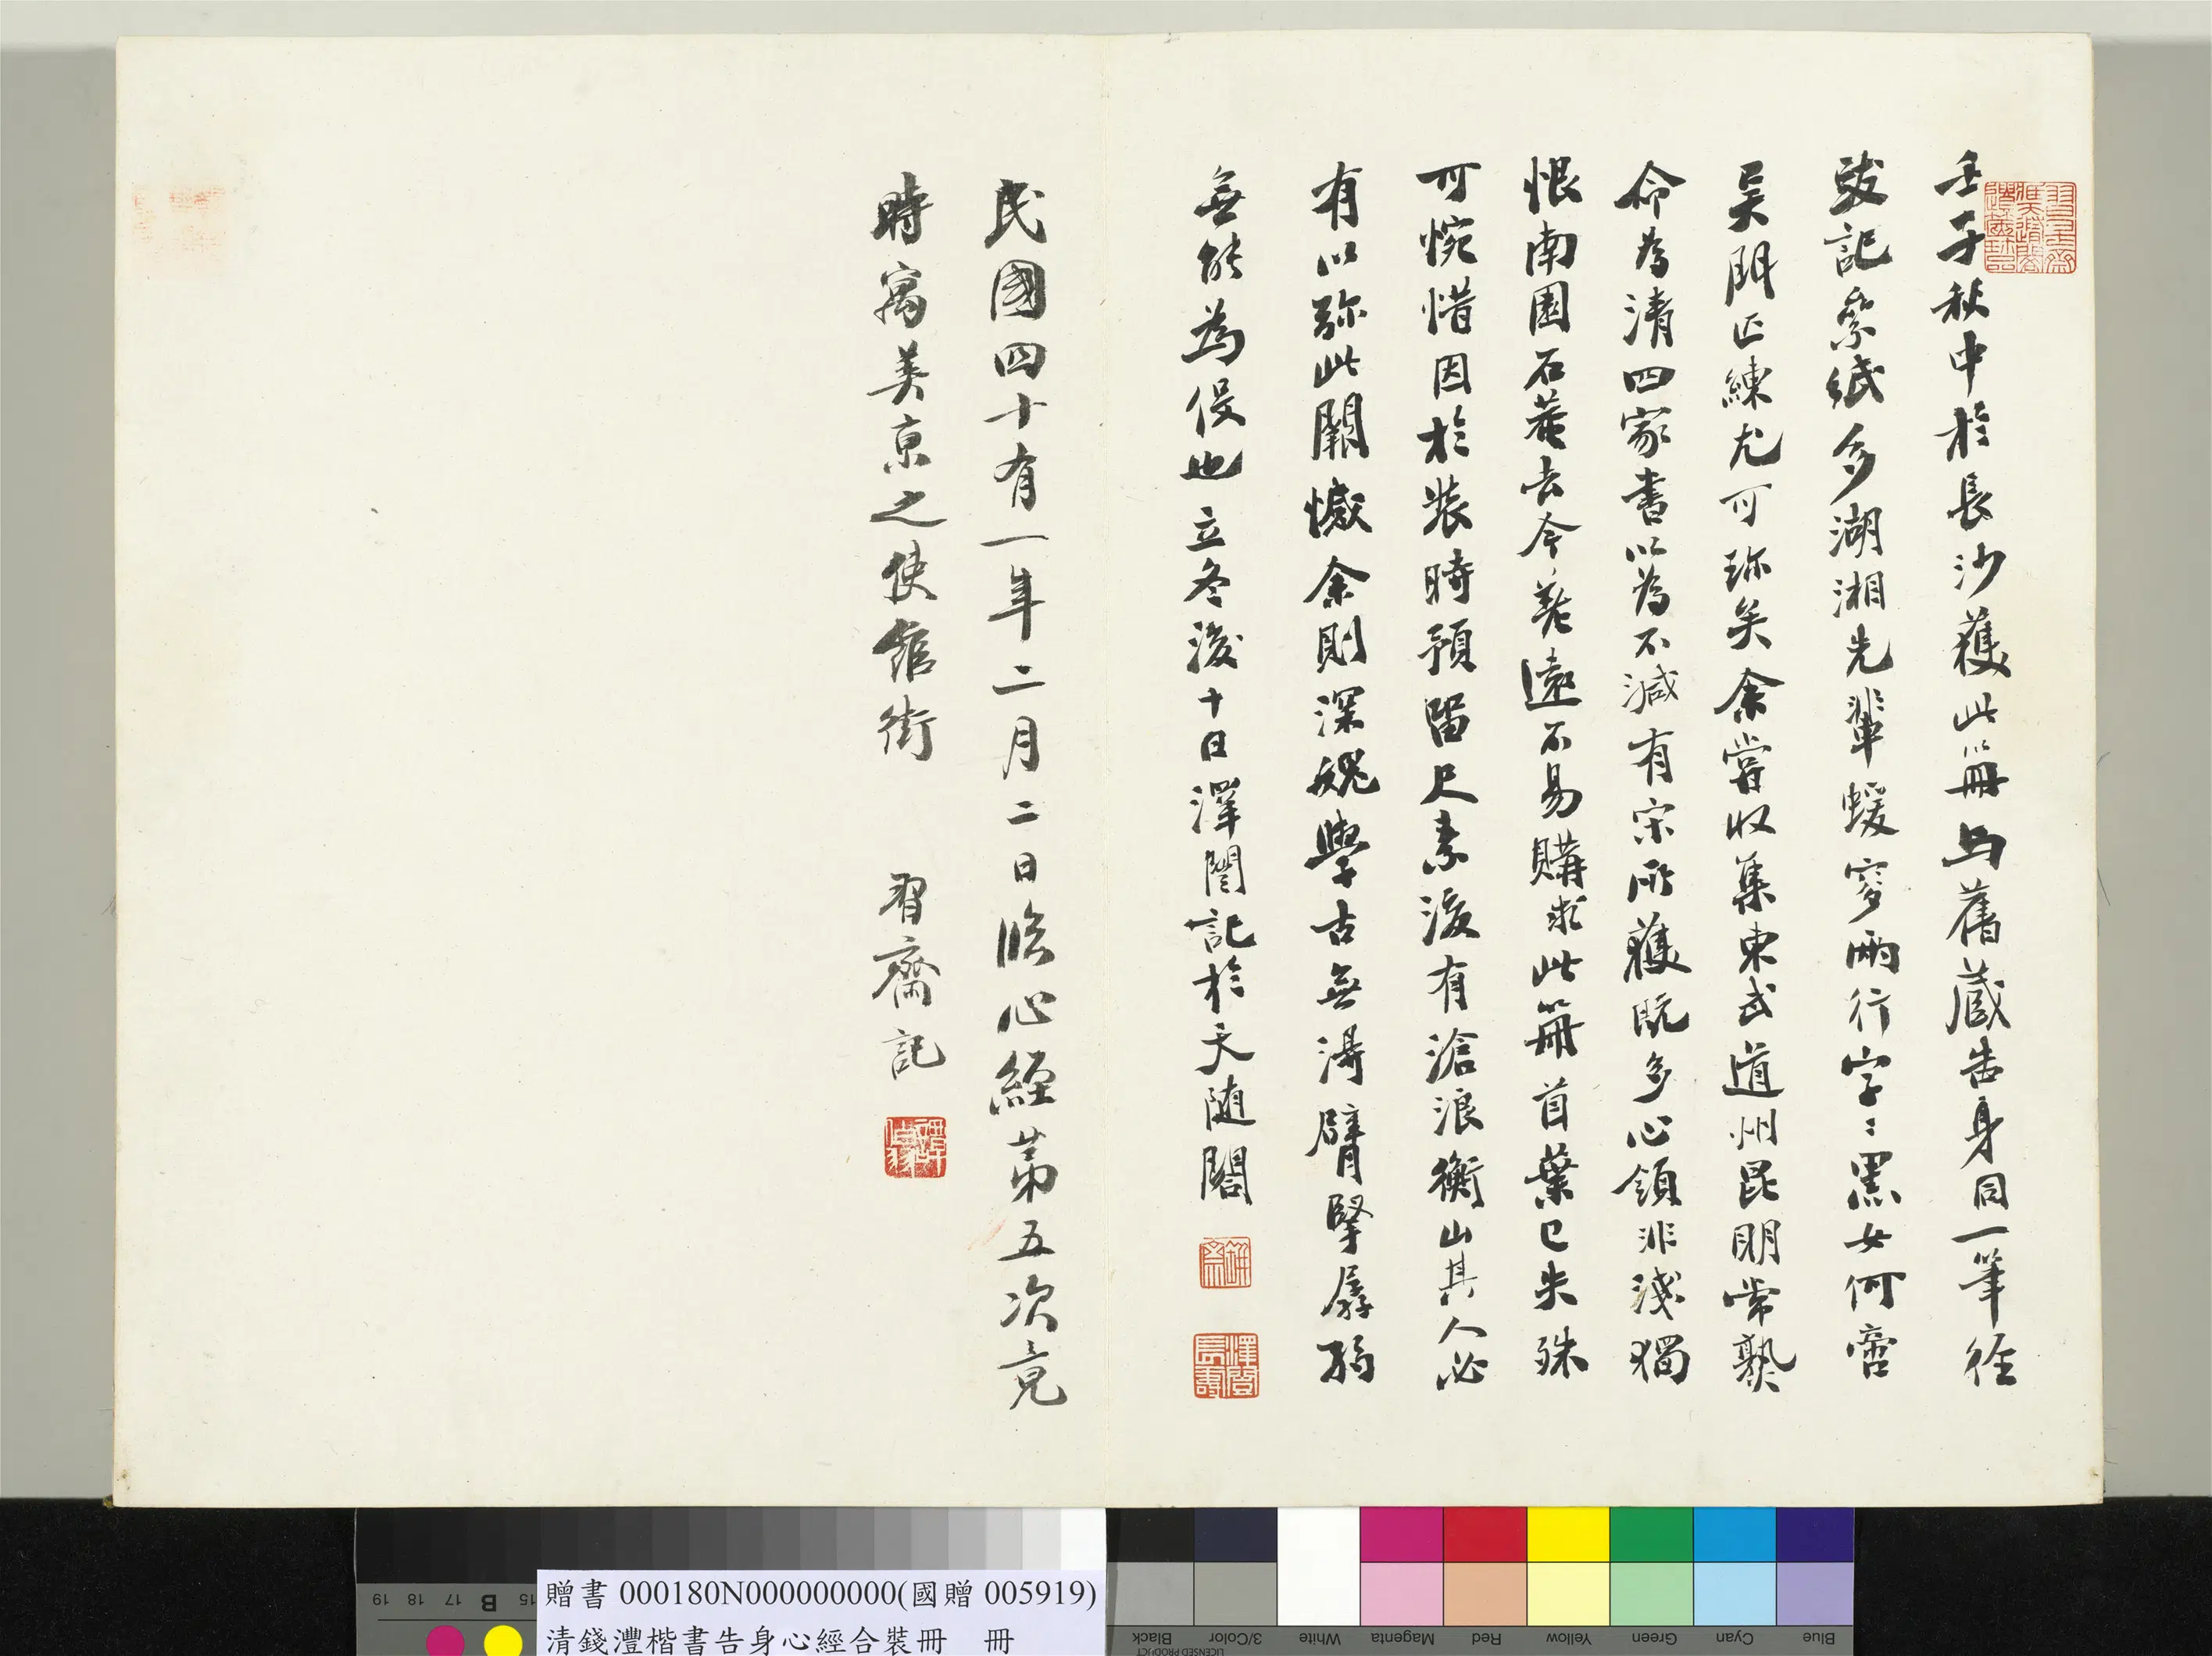 壬子秋中於長沙獲此冊與舊藏告身同一筆徑
跋記參紙多湖湘先輩蝯叟兩行字〻黑女何啻
吳門匹練尤可珎矣余嘗收集東武道州昆明常熟
命為清四家書以為不減有宋所獲既多心領非淺獨
恨南園石菴去今寖遠不易購求此冊首葉已失殊
可惋惜因於裝時預留尺素後有滄浪衡山其人必
有以弥此闕憾余則深媿學古無淂臂掔孱弱
無能為役也立冬後十日澤闓記於天隨閣
民國四十有一年二月二日臨心經第五次竟
時寓美京之使館街 習齋記
譚伯羽
缾齋
澤闓長壽
贈書 000180N000000000(國贈 005919)
清錢灃楷書告身心經合裝冊 冊
19 18 17 B 15
Black 3/Color White Magenta Red Yellow Green Cyan Blue
LICENSED PRODUCT